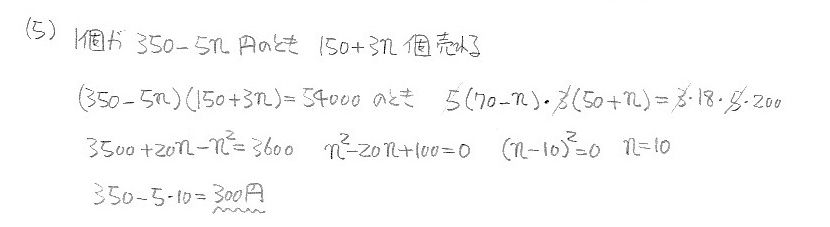 (5) 1個が 350-5n 円のとき 150+3n 個売れる
(350-5n)(150+3n)=54000 のとき 5(70-n)・3(50+n)=3・18・5・200
3500+20n-n²=3600 n²-20n+100=0 (n-10)²=0 n=10
350-5・10=300円